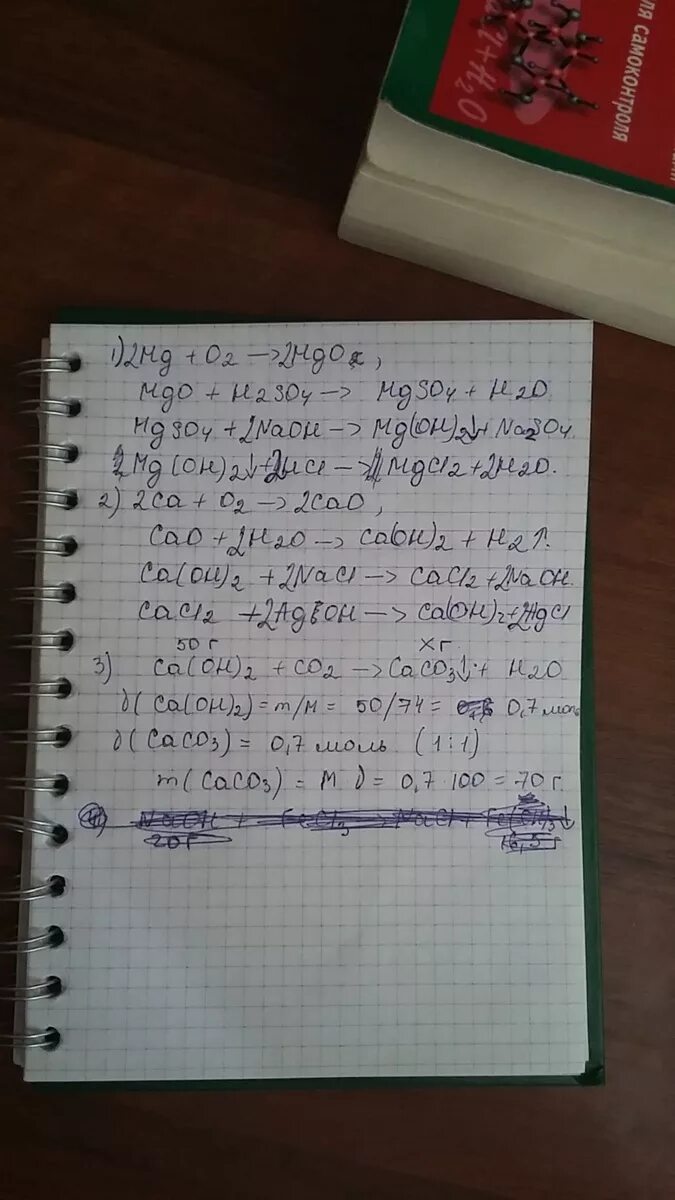 Cl+H2O
ля самоконтроля
1) 2Mg + O2 → 2MgO,
MgO + H2SO4 → MgSO4 + H2O
MgSO4 + 2NaOH → Mg(OH)2↓ + Na2SO4
Mg(OH)2↓ + 2HCl → MgCl2 + 2H2O.
2) 2Ca + O2 → 2CaO,
CaO + 2H2O → Ca(OH)2 + H2↑.
Ca(OH)2 + 2NaCl → CaCl2 + 2NaOH.
CaCl2 + 2AgOH → Ca(OH)2 + 2AgCl
50 г xг
3) Ca(OH)2 + CO2 → CaCO3↓ + H2O
ν(Ca(OH)2) = m/M = 50/74 = 0,7 моль
ν(CaCO3) = 0,7 моль (1:1)
m(CaCO3) = M ν = 0,7 · 100 = 70 г.
NaOH + FeCl3 → NaCl + Fe(OH)3↓
20 г 16,5 г